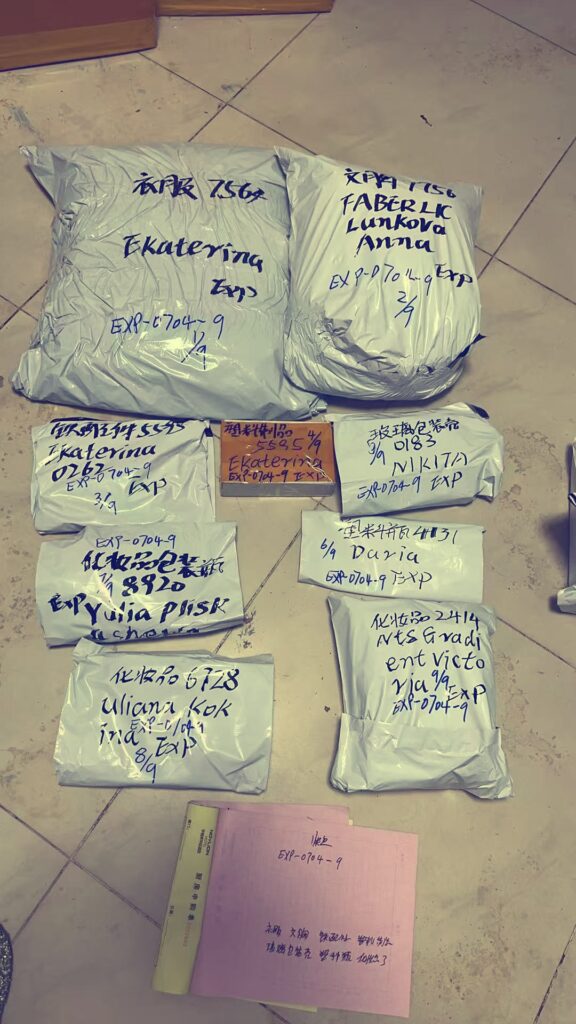 衣服 7564
Ekaterina
Exp
EXP-0704-9
1/9
文胸 1156
FABERLIC
Lunkova
Anna
EXP-0704-9 Exp
2/9
5595
Ekaterina
0262
EXP-0704-9
3/9 Exp
塑料制品
5595 4/9
Ekaterina
EXP-0704-9 EXP
玻璃包装壳
5/9 0183
NIKITA
EXP-0704-9 EXP
EXP-0704-9
化妆品包装瓶
7/9 8920
EXP Yulia Plisk
塑料瓶 4131
6/9 Daria
EXP-0704-9 EXP
化妆品 6728
Uliana Kok
ina EXP-0704-9
8/9 Exp
化妆品 2414
Nts Gradi
ent Victo
ria 9/9
EXP
EXP-0704-9
EXP-0704-9
衣服 文胸